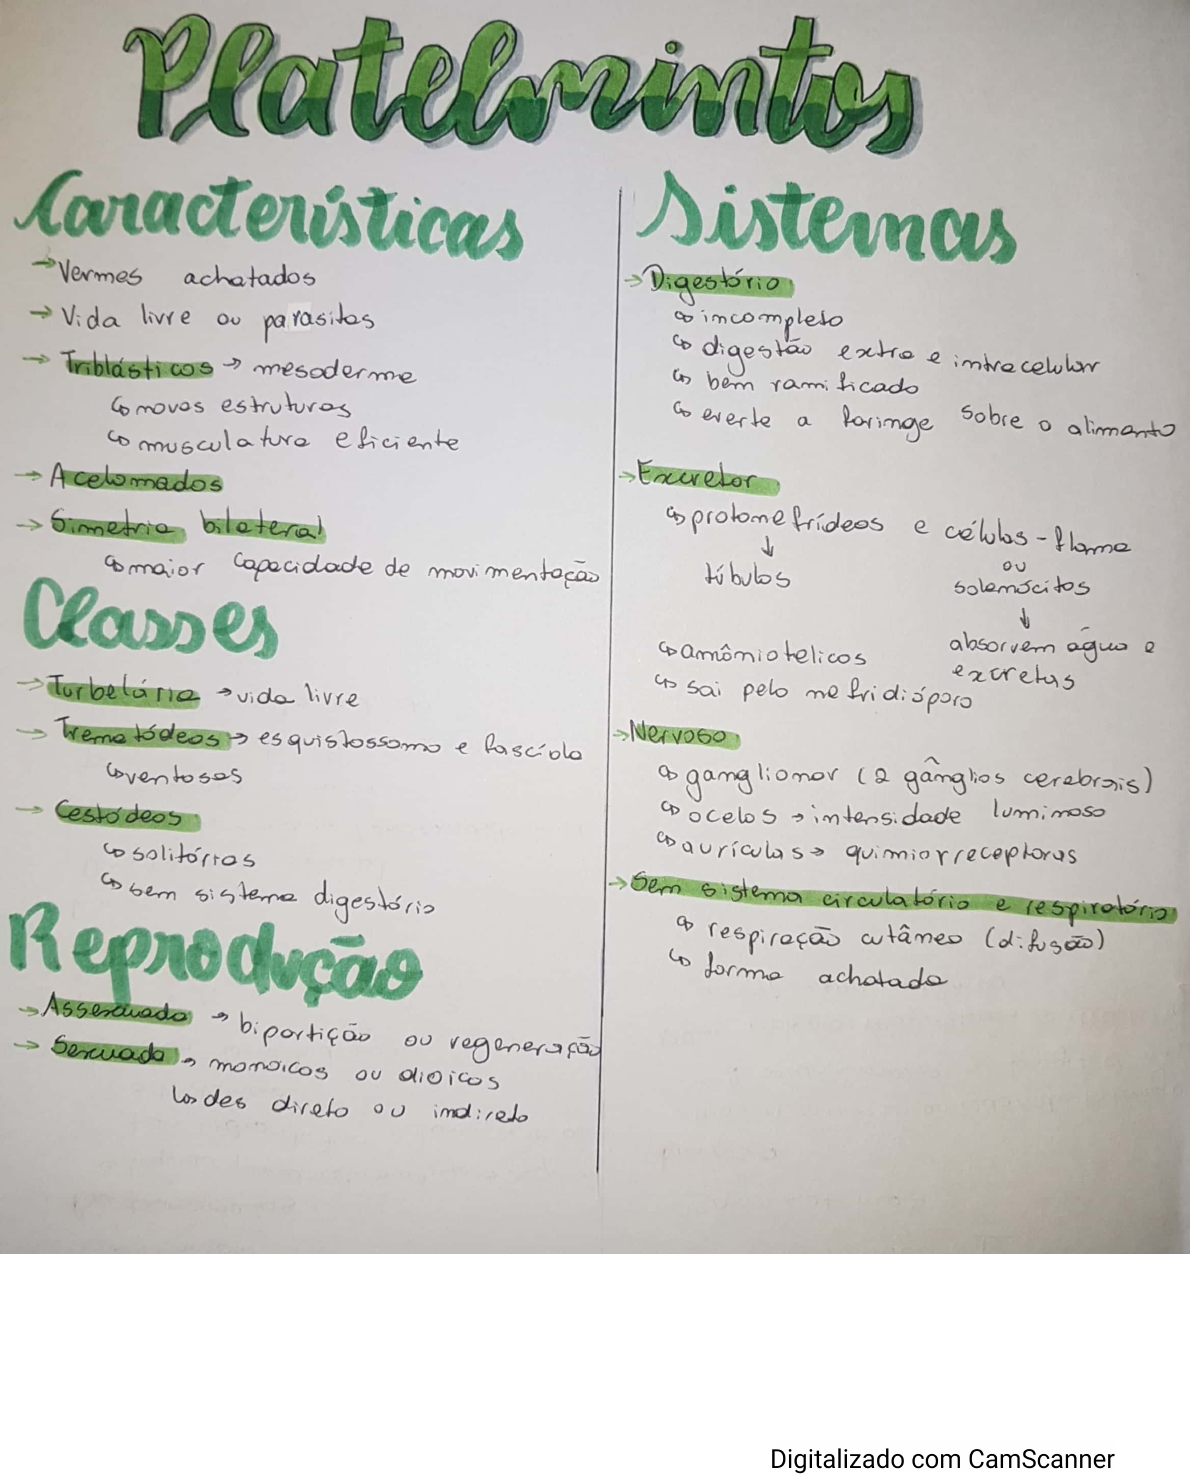 Platelmintos
Características
→ Vermes achatados
→ Vida livre ou parasitas
→ Triblásticos → mesoderme
↳ novas estruturas
↳ musculatura eficiente
→ Acelomados
→ Simetria bilateral
↳ maior capacidade de movimentação
Classes
→ Turbelária → vida livre
→ Trematódeos → esquistossomo e fascíola
↳ ventosas
→ Cestódeos
↳ solitárias
↳ sem sistema digestório
Reprodução
→ Assexuada → bipartição ou regeneração
→ Sexuada → monoicos ou dioicos
↳ des direto ou indireto
Sistemas
→ Digestório
↳ incompleto
↳ digestão extra e intracelular
↳ bem ramificado
↳ everte a faringe sobre o alimento
→ Excretor
↳ protonefrídeos e células-flama
↓ ou
túbulos solenócitos
↓
↳ amôniotelicos absorvem água e
excretas
↳ sai pelo nefridióporo
→ Nervoso
↳ ganglionar (2 gânglios cerebrais)
↳ ocelos → intensidade luminosa
↳ aurículas → quimiorreceptoras
→ Sem sistema circulatório e respiratório
↳ respiração cutânea (difusão)
↳ forma achatada
Digitalizado com CamScanner